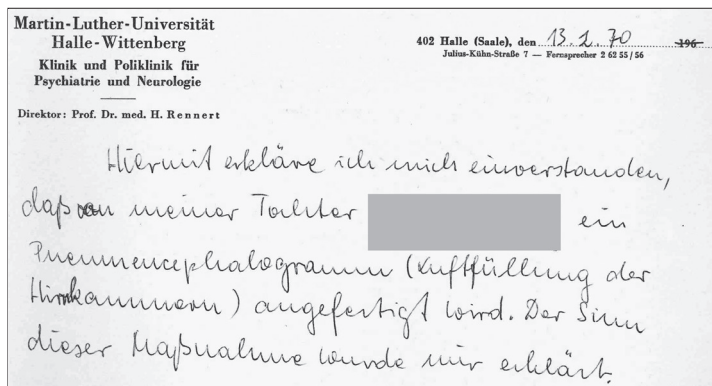 Martin-Luther-Universität
Halle-Wittenberg
Klinik und Poliklinik für
Psychiatrie und Neurologie
Direktor: Prof. Dr. med. H. Rennert
402 Halle (Saale), den 13.2.70 196
Julius-Kühn-Straße 7 — Fernsprecher 2 62 55/56
Hiermit erkläre ich mich einverstanden,
daß von meiner Tochter ein
Pneumencephalogramm (Luftfüllung der
Hirnkammern) angefertigt wird. Der Sinn
dieser Maßnahme wurde mir erklärt.